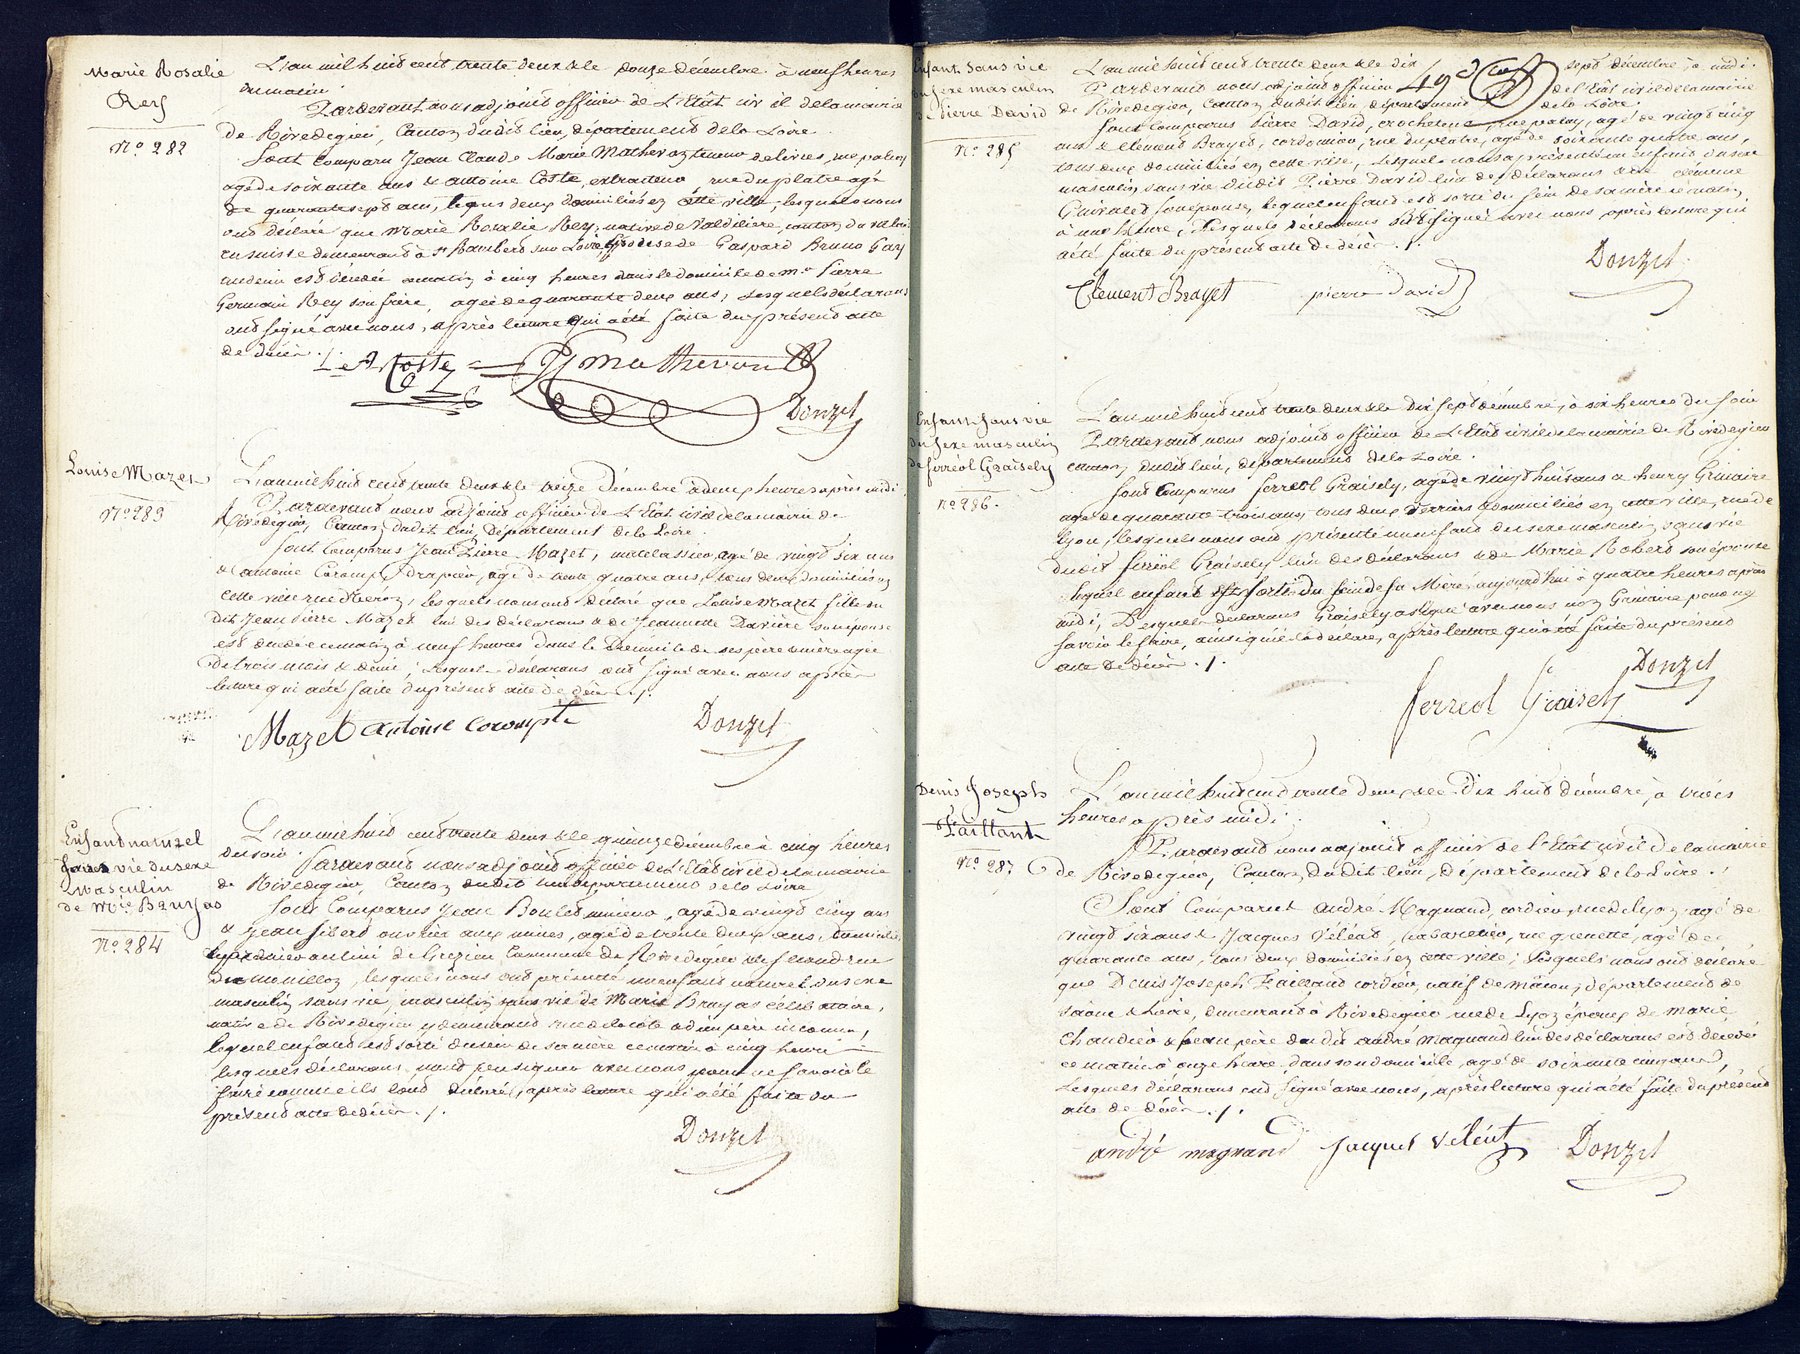 Marie Rosalie
Rey
N.o 282
L'an mil huit cent trente deux & le douze décembre à neuf heures
du matin.
Pardevant nous adjoint officier de L'Etat civil de la mairie
de Rivedegier, Canton dudit lieu, département de la Loire.
Sont Comparu Jean Claude Marie Mathevon teneur de livres,
agé de soixante ans & antoine Coste, extracteur, rue du platre agé
de quarante sept ans, tous deux domiciliés en cette ville, lesquels nous
ont déclaré que Marie Rosalie Rey, native de canton du
en suisse demeurant à St Rambert sur Loire, de Gaspard Bruno Gay
est décédée ce matin à cinq heures dans le domicile de mr Pierre
Germain Rey son frère, agée de quarante deux ans, Lesquels déclarans
ont signé avec nous, après lecture qui a été faite du présent acte
de décès ./.
A Coste
Mathevon
Donzel
Louise Mazet
N.o 283
L'an mil huit cent trente deux & le treize Décembre à deux heures après midi
Pardevant nous adjoint officier de L'Etat civil de la mairie de
Rivedegier, Canton dudit lieu, Département de la Loire.
Sont Comparus Jean Pierre Mazet, matelassier, agé de vingt six ans
& antoine Coromp drapier, agé de trente quatre ans, tous deux domiciliés en
cette ville rue d'heron, lesquels nous ont déclaré que Louise Mazet fille du
dit Jean Pierre Mazet l'un des déclarans & de Jeannette Davière son épouse
est décédée ce matin à neuf heures dans le Domicile de ses père & mère agée
de trois mois & demi; lesquels déclarans ont signé avec nous après
lecture qui a été faite du présent acte de décès ./.
Mazet antoine Coromptz
Donzel
Enfant naturel
sans vie du sexe
masculin
de Mie
N.o 284
L'an mil huit cent trente deux & le quinze décembre à cinq heures
du soir.
Pardevant nous adjoint officier de L'Etat civil de la mairie
de Rivedegier, Canton dudit lieu département de la Loire
Sont Comparus Jean Boulet mineur, agé de vingt cinq ans
& Jean Sibert ouvrier aux mines, agé de trente deux ans, domiciliés
le premier au lieu de Grezieu Commune de Rivedegier & le second rue
du mouillon, lesquels nous ont présenté un enfant naturel du sexe
masculin sans vie, masculin sans vie de Marie Brayas célibataire,
native de Rivedegier y demeurant rue de la côte & d'un père inconnu,
lequel enfant est sorti du sein de sa mère ce matin à cinq heures
lesquels déclarans, n'ont pu signer avec nous pour ne savoir le
faire comme ils l'ont déclaré, après lecture qui a été faite du
présent acte de décès ./.
Donzel
Enfant sans vie
du sexe masculin
de Pierre David
N.o 285
49
L'an mil huit cent trente deux & le dix sept décembre, à midi.
Pardevant nous adjoint officier de l'Etat civil de la mairie
de Rivedegier, Canton dudit lieu, département de la Loire.
Sont Comparus Pierre David, crocheteur, agé de vingt cinq
ans & Clément Brayet, cordonnier, rue du platre, agé de soixante quatre ans,
tous deux domiciliés en cette ville, lesquels nous a présenté un enfant du sexe
masculin, sans vie dudit Pierre David l'un des déclarans & de
son épouse, lequel enfant est sorti du sein de sa mère ce matin
à une heure, Lesquels déclarans ont signé avec nous après lecture qui
a été faite du présent acte de décès ./.
Clement Brayet
pierre David
Donzel
Enfant sans vie
du sexe masculin
de ferréol Graisely
N.o 286.
L'an mil huit cent trente deux & le dix sept décembre, à six heures du soir
Pardevant nous adjoint officier de L'Etat civil de la mairie de Rivedegier
canton dudit lieu, département de la Loire.
Sont Comparus ferréol Graisely, agé de vingt huit ans & henry Grimaire
agé de quarante trois ans, tous deux verriers domiciliés en cette ville, rue de
Lyon, lesquels nous ont présenté un enfant du sexe masculin, sans vie
dudit ferréol Graisely l'un des déclarans & de Marie Robert son épouse
lequel enfant est sorti du sein de sa Mère aujourd'hui à quatre heures après
midi, Desquels déclarans Graisely a signé avec nous non Grimaire pour ne
savoir le faire, ainsi qu'il l'a déclaré, après lecture qui a été faite du présent
acte de décès ./.
Donzel
ferreol Graisely
Denis Joseph
Faillant
N.o 287
L'an mil huit cent trente deux & le Dix huit décembre, à trois
heures après midi
Pardevant nous adjoint officier de l'Etat civil de la mairie
de Rivedegier, Canton dudit lieu, Département de la Loire ./
Sont Comparus andré Magnand, cordier, rue de lyon, agé de
vingt six ans & Jacques Véléat, Cabaretier, rue grenette, agé de
quarante ans, tous deux domiciliés en cette ville; lesquels nous ont déclaré
que Denis Joseph Faillant cordier, natif de mâcon, département de
saone & Loire, demeurant à Rivedegier rue de Lyon époux de marie
Chaudier & beau père du dit andré magnand l'un des déclarans est décédé
ce matin à onze heure, dans son domicile, agé de soixante cinq ans,
Lesquels déclarans ont signé avec nous, après lecture qui a été faite du présent
acte de décès ./.
andré magnand Jacques Véléat
Donzel